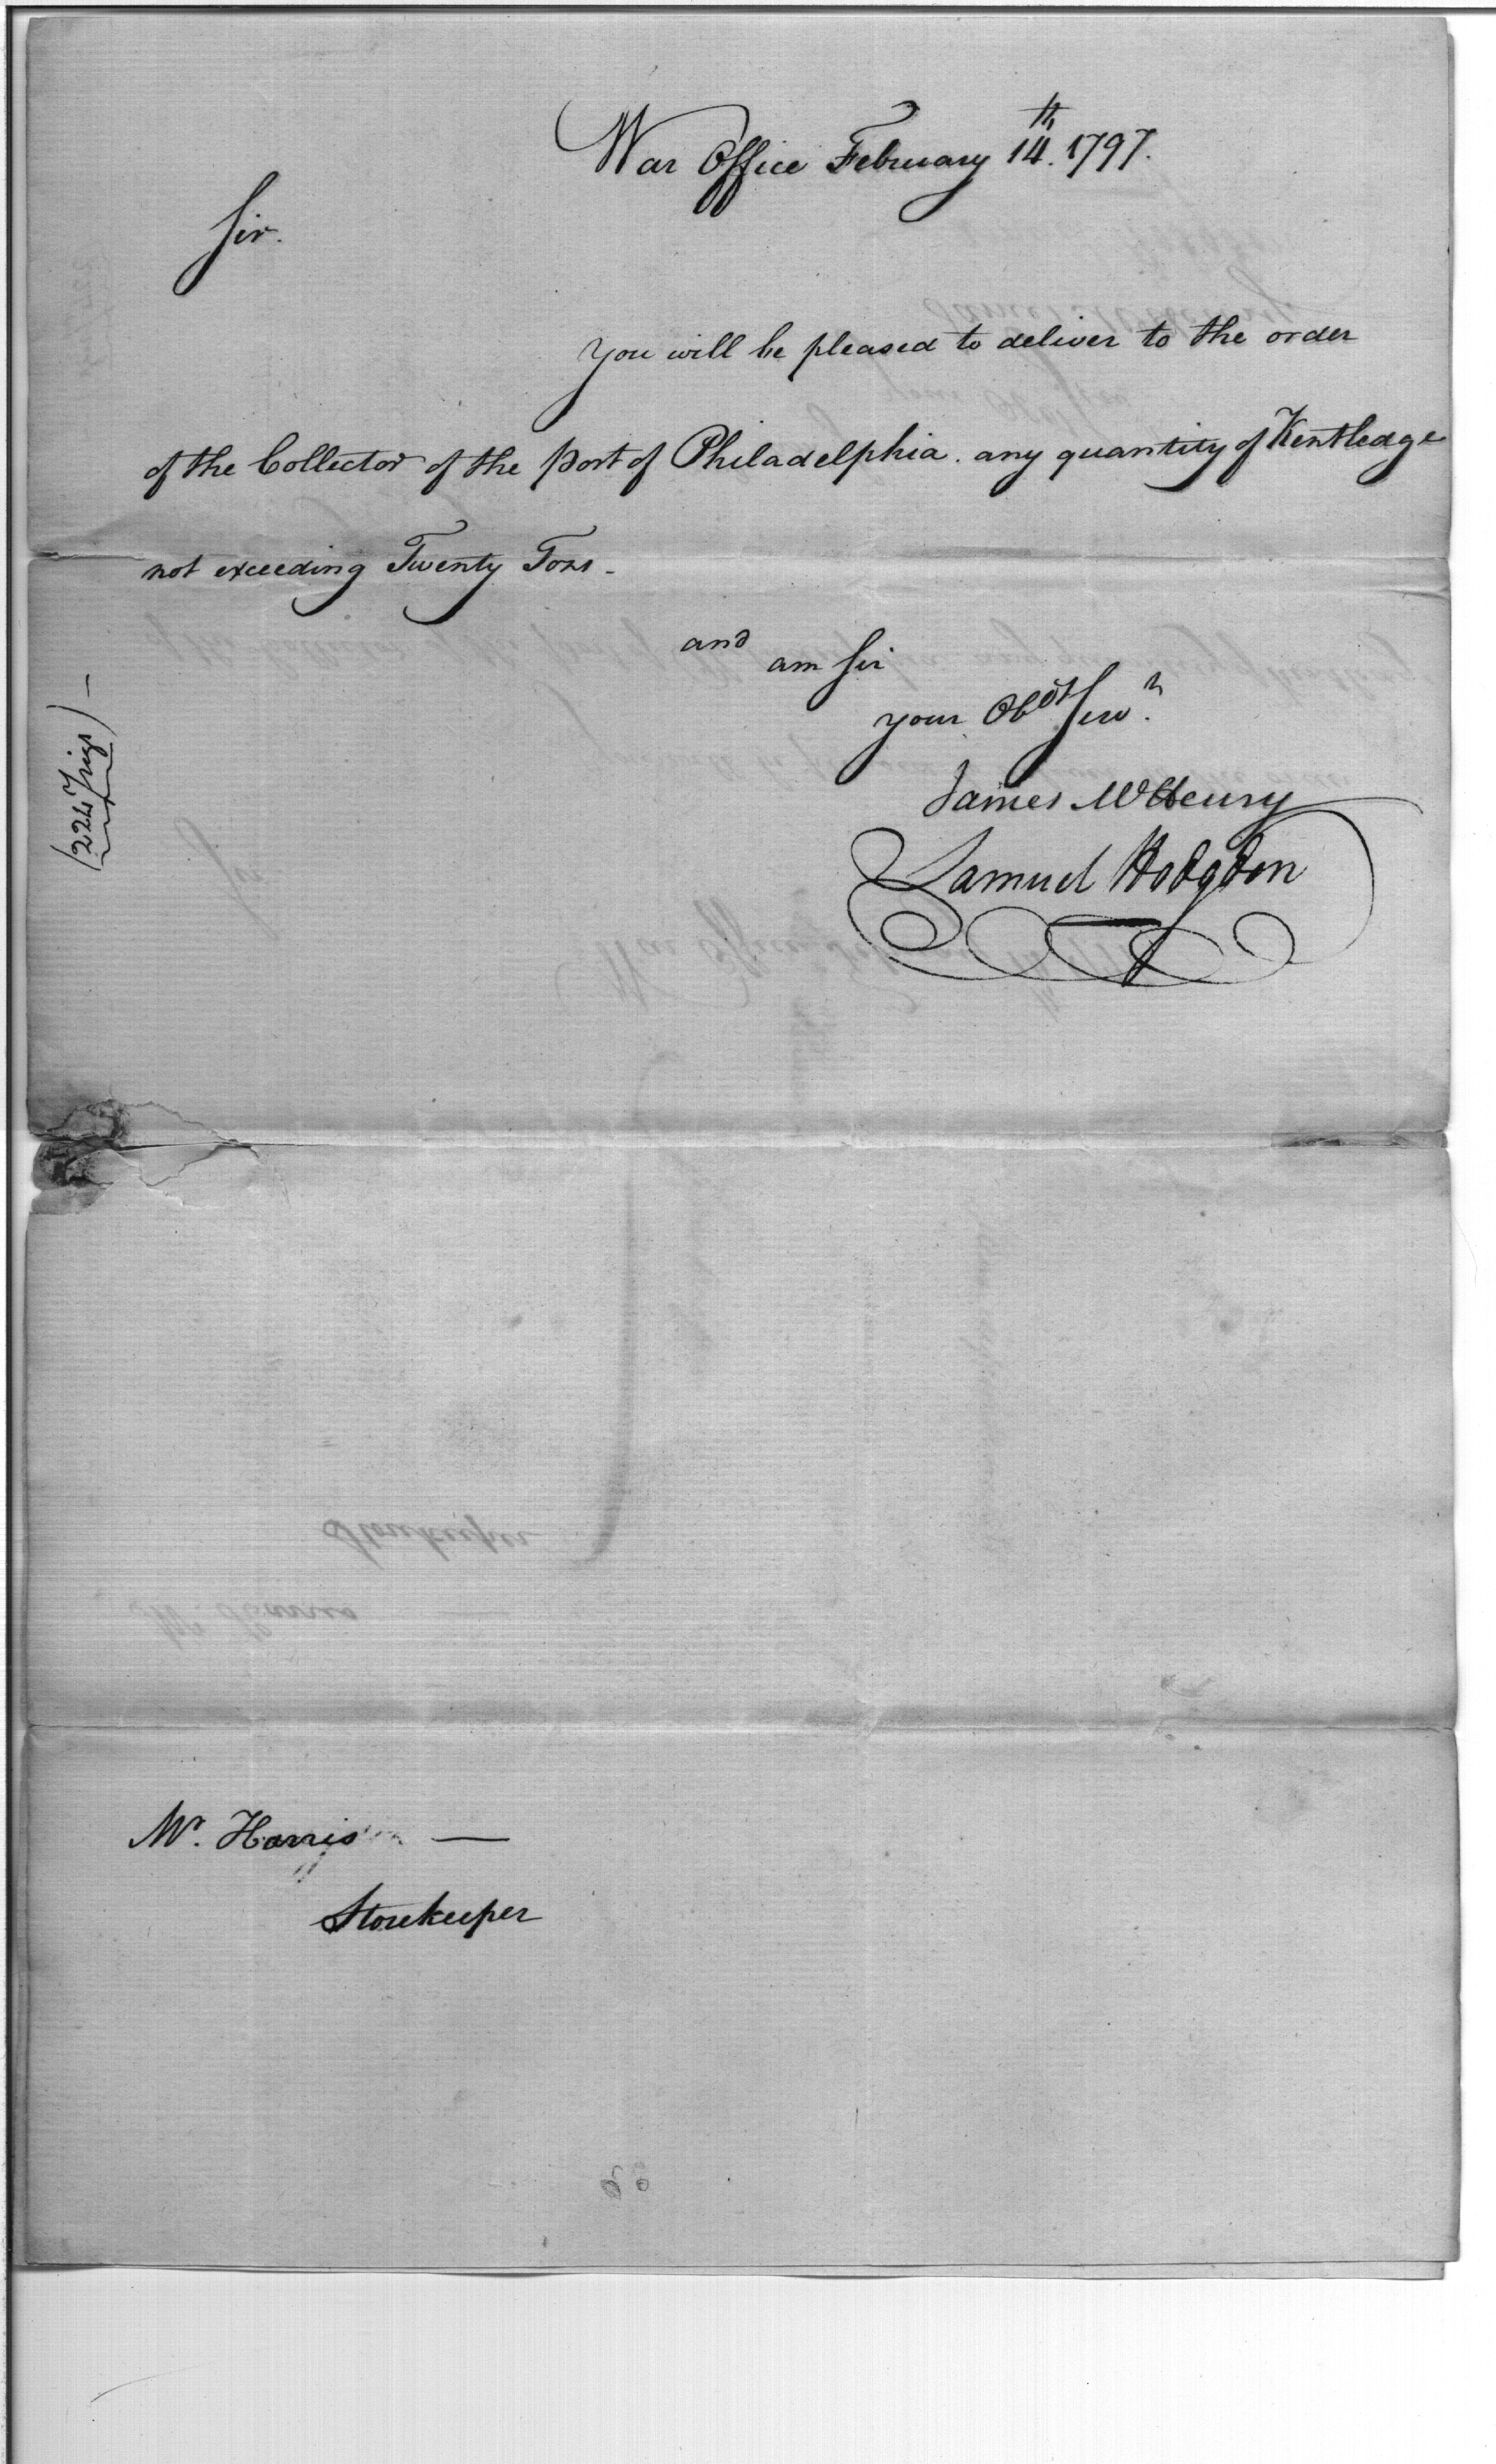 War Office February 14th. 1797.
Sir.
You will be pleased to deliver to the order
of the Collector of the port of Philadelphia. any quantity of Kentledge
not exceeding Twenty Tons -
and
am Sir
your Obdt Servt.
James McHenry
Samuel Hodgdon
(224 Pigs) -
Mr. Harris —
Storekeeper